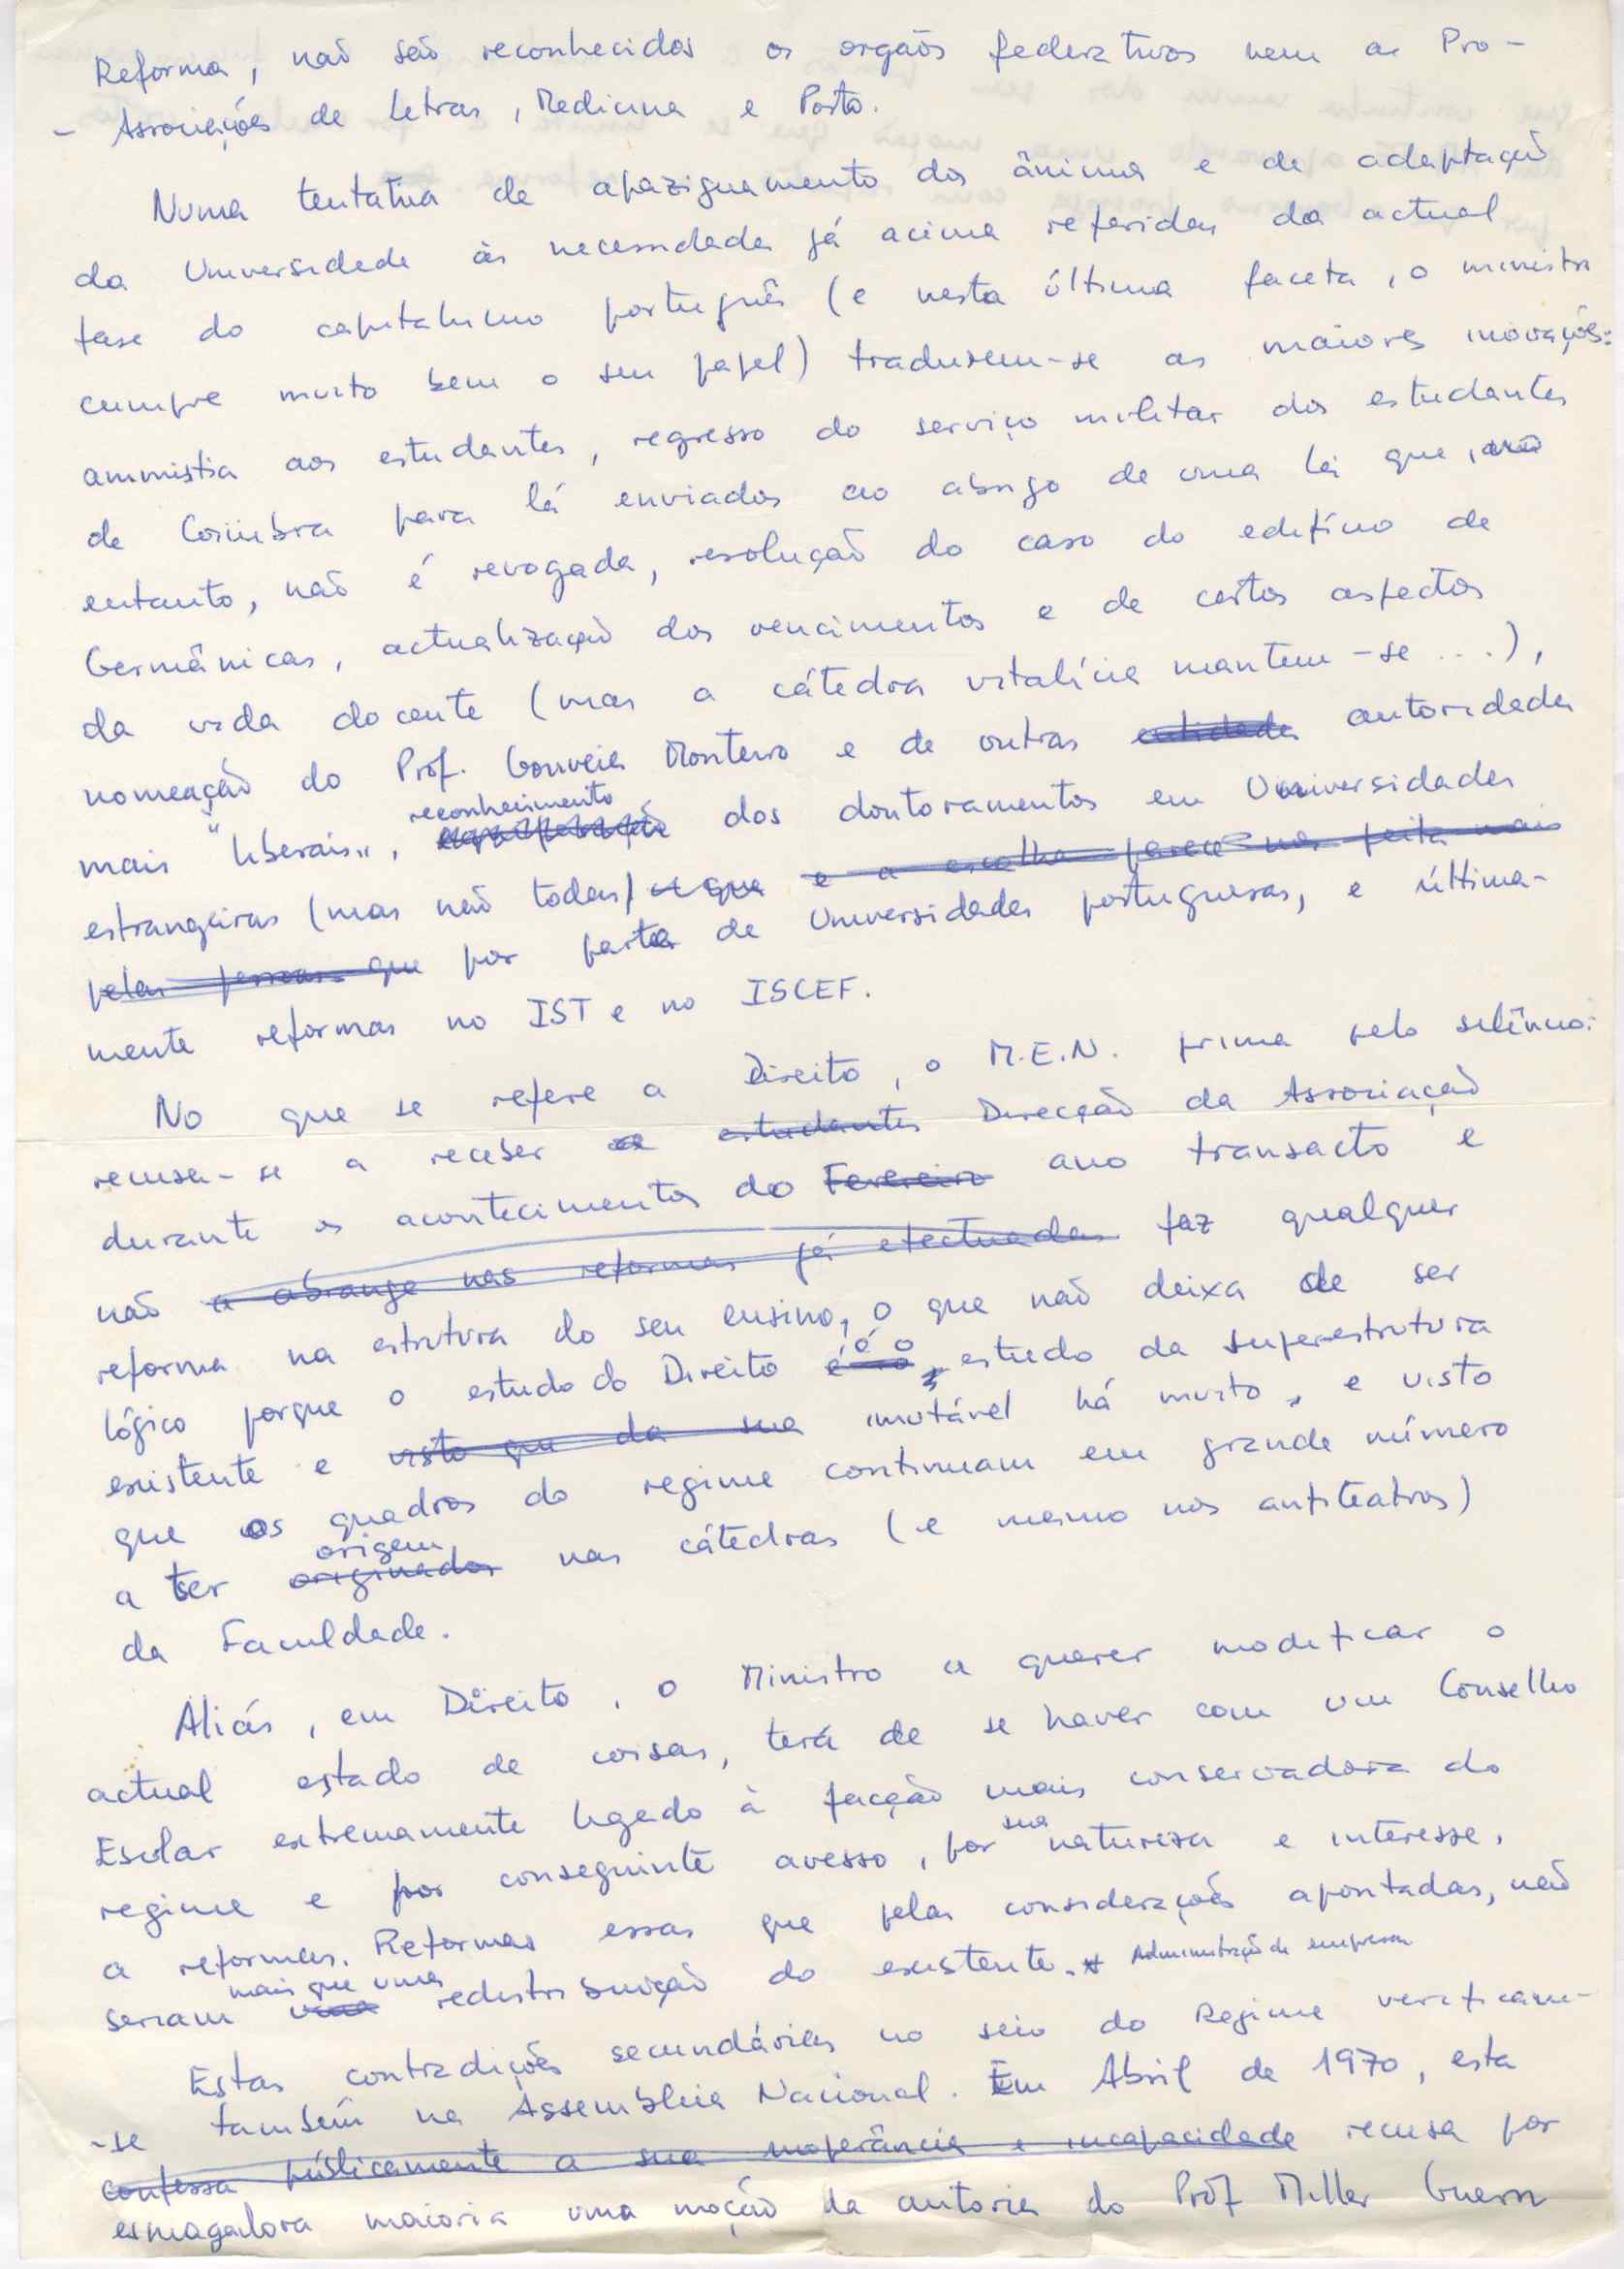 Reforma, não são reconhecidos os orgãos federativos nem as Pro-
- Associações de Letras, Medicina e Porto.
Numa tentativa de apaziguamento dos ânimos e de adaptação
da Universidade às necessidades já acima referidas da actual
fase do capitalismo português (e nesta última faceta, o ministro
cumpre muito bem o seu papel) traduzem-se as maiores inovações:
ammistia aos estudantes, regresso do serviço militar dos estudantes
de Coimbra para lá enviados ao abrigo de uma lei que, no
entanto, não é revogada, resolução do caso do edifício de
Germânicas, actualização dos vencimentos e de certos aspectos
da vida docente (mas a cátedra vitalícia mantem-se ...),
nomeação do Prof. Gouveia Monteiro e de outras entidades autoridades
mais "liberais", reconhecimento dos doutoramentos em Universidades
estrangeiras (mas não todas) e que e a escolha parece-nos feita mais
pelas pessoas que por parte de Universidades portuguesas, e última-
mente reformas no IST e no ISCEF.
No que se refere a Direito, o M.E.N. prima pelo silêncio:
recusa-se a receber estudantes Direcção da Associação
durante os acontecimentos do Fevereiro ano transacto e
não a abrange nas reformas já efectuadas faz qualquer
reforma na estrutura do seu ensino, o que não deixa de ser
lógico porque o estudo do Direito é o é o estudo da superestrutura
existente e visto que da sua imutável há muito, e visto
que os quadros do regime continuam em grande número
a ter originados origem nas cátedras (e mesmo nos anfiteatros)
da Faculdade.
Aliás, em Direito, o Ministro a querer modificar o
actual estado de coisas, terá de se haver com um Conselho
Escolar extremamente ligado à facção mais conservadora do
regime e por conseguinte avesso, por sua natureza e interesse,
a reformas. Reformas essas que pelas considerações apontadas, não
seriam uma mais que uma redistribuição do existente. * Administração de empresas
Estas contradições secundárias no seio do Regime verificam-
-se também na Assembleia Nacional. Em Abril de 1970, esta
confessa públicamente a sua inoperância e incapacidade recusa por
esmagadora maioria uma moção da autoria do Prof Miller Guerra